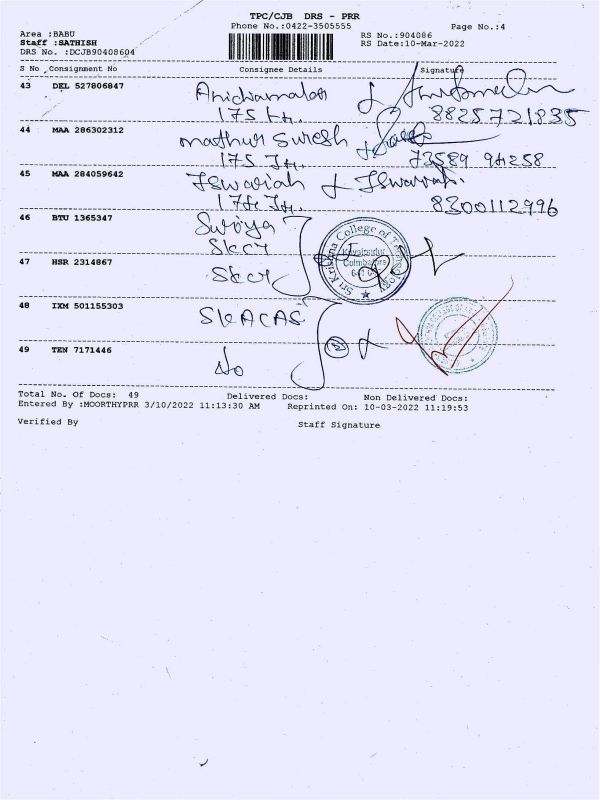 TPC/CJB DRS - PRR
Phone No.:0422-3505555
Page No.:4
Area :BABU
RS No.:904086
Staff :SATHISH
RS Date:10-Mar-2022
DRS No. :DCJB90408604
S No Consignment No Consignee Details Signature
43 DEL 527806847
8825721835
44 MAA 286302312 mathur suresh
73589 94258
45 MAA 284059642 Iswariah
8300112996
46 BTU 1365347 Surya
Skct
47 HSR 2314867 Skct
Sri Krishna College of Technology
Kovaipudur
Coimbatore
48 IXM 501155303 SKACAS
49 TEN 7171446
Total No. Of Docs: 49 Delivered Docs: Non Delivered Docs:
Entered By :MOORTHYPRR 3/10/2022 11:13:30 AM Reprinted On: 10-03-2022 11:19:53
Verified By Staff Signature